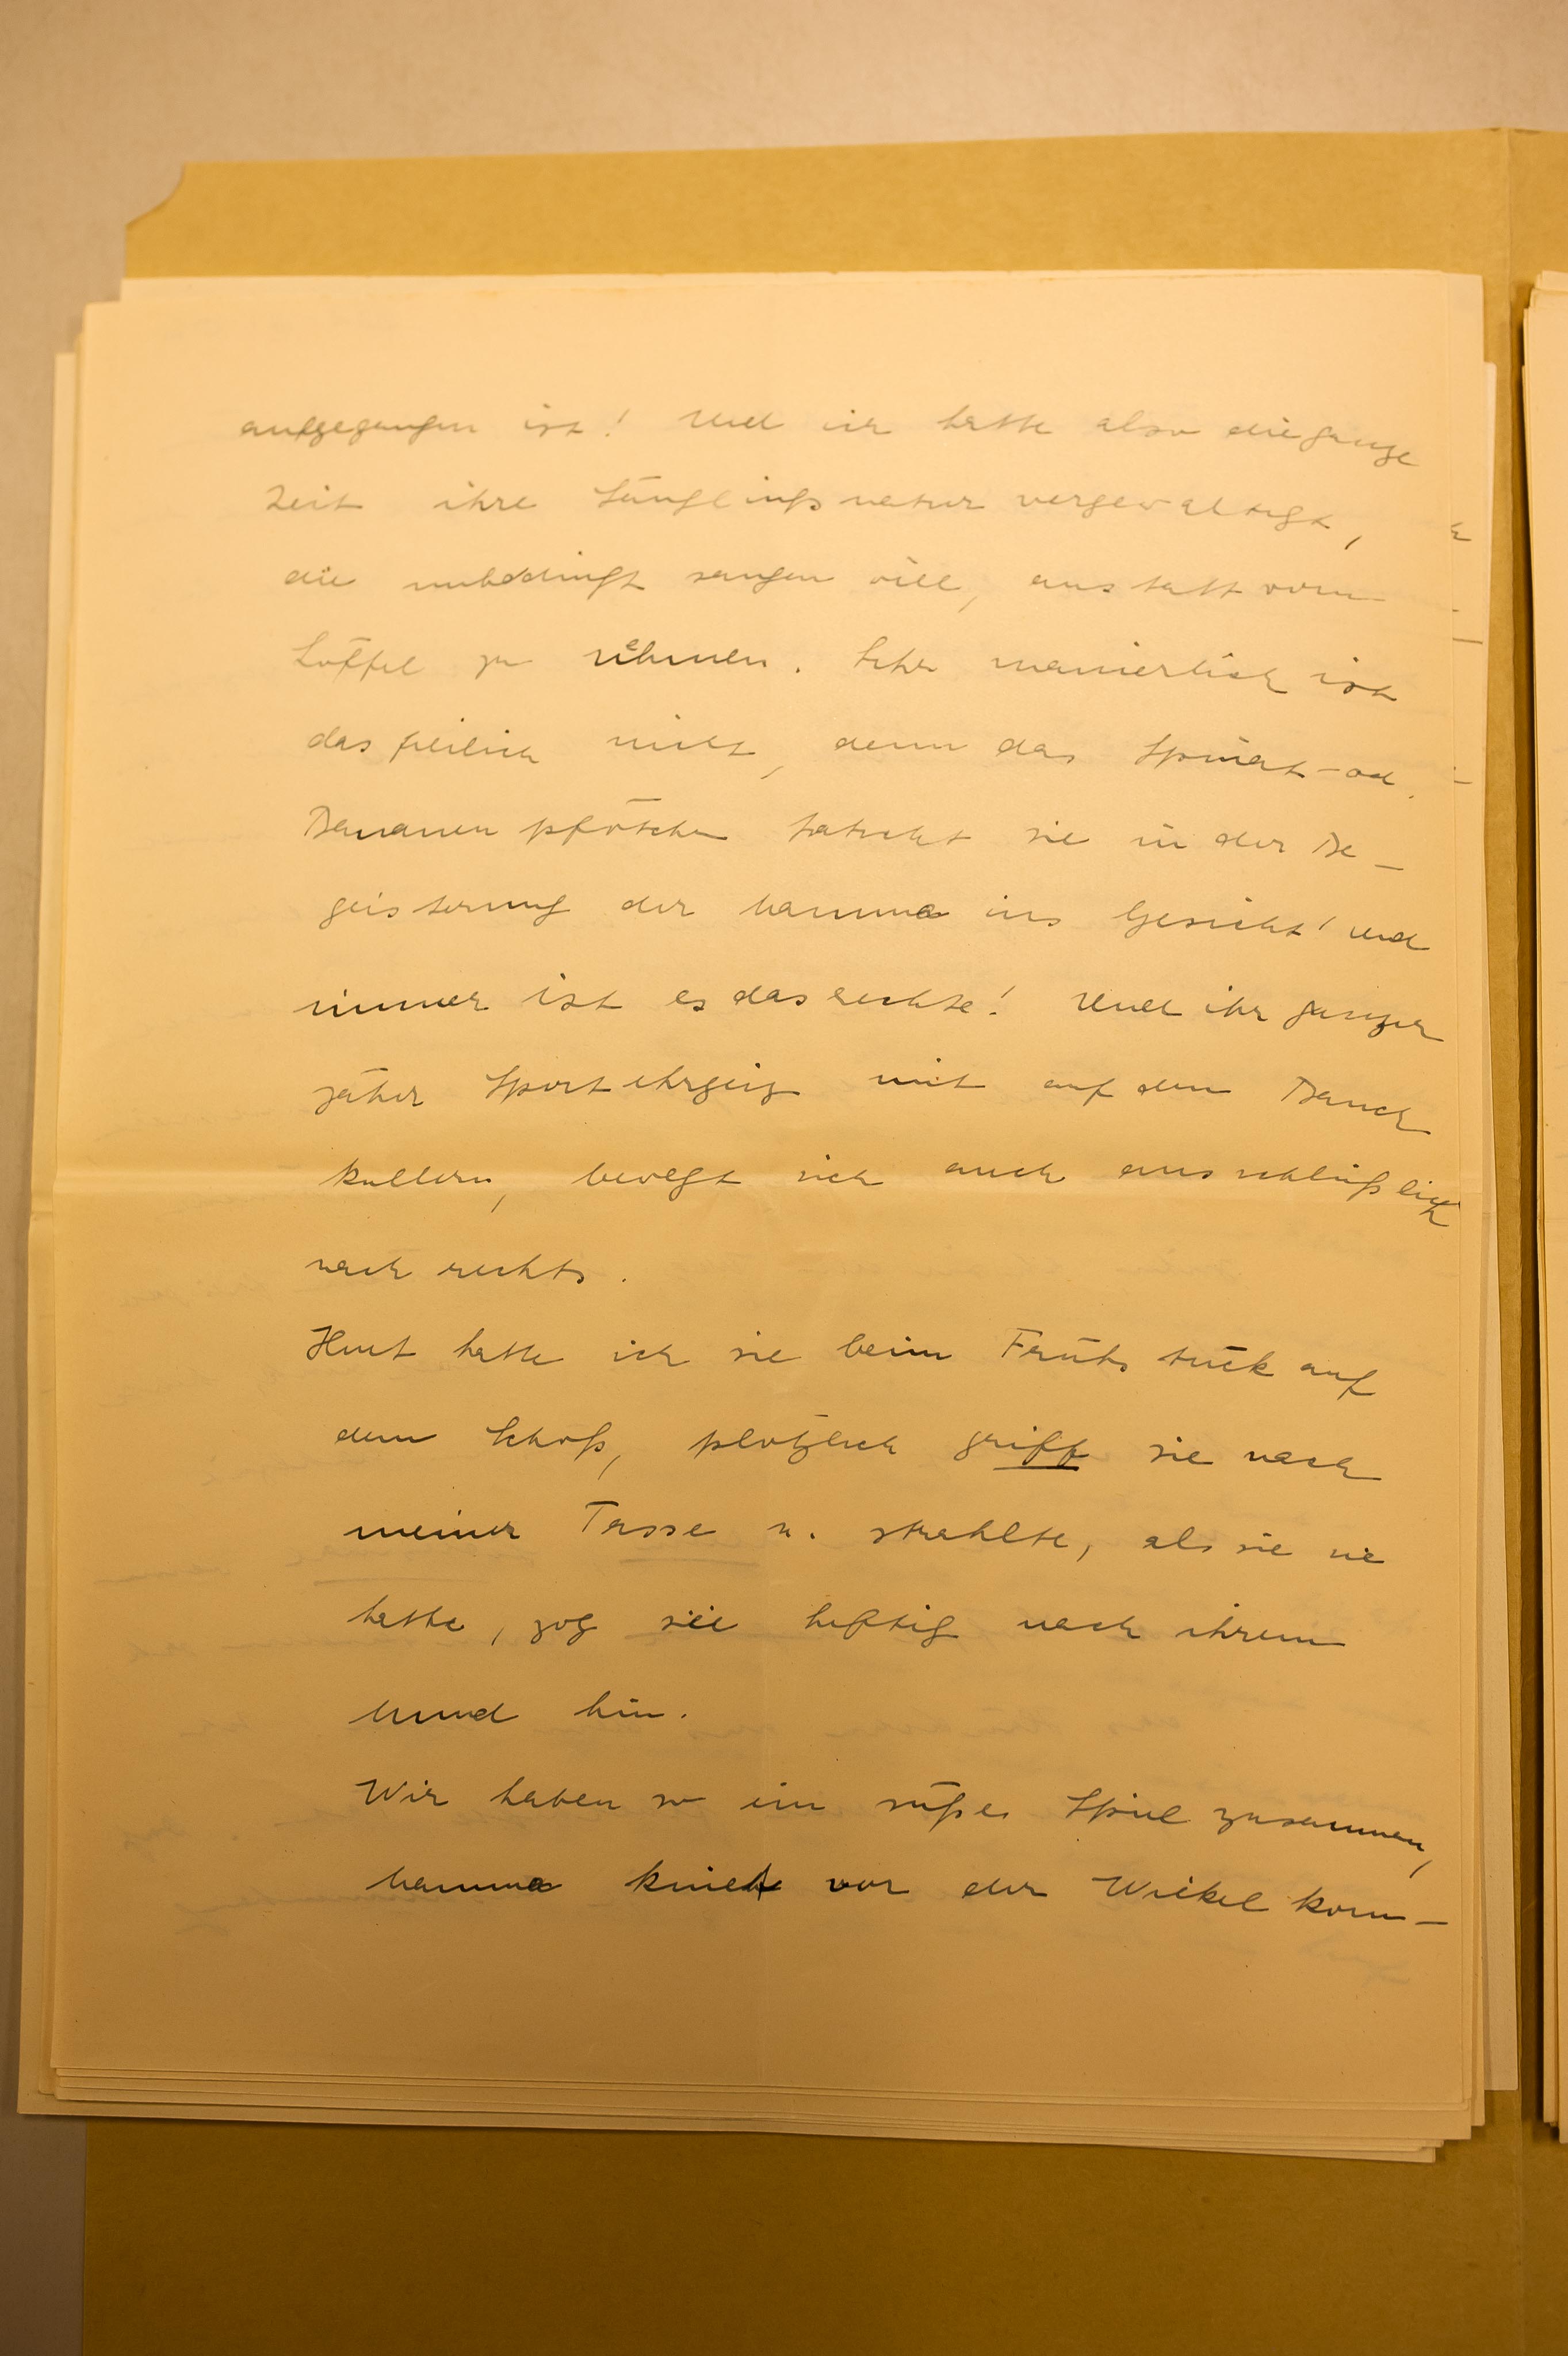 aufgegangen ist! Und ich hatte also die ganze
Zeit ihre Säuglingsnatur vergewaltigt,
die unbedingt saugen will, anstatt vom
Löffel zu nehmen. Sehr manierlich ist
das freilich nicht, denn das Spinat- od.
Bananenpfötchen tatscht sie in der Be-
geisterung der Mamma ins Gesicht! Und
immer ist es das rechte! Und ihr ganzer
zäher Sportehrgeiz mit auf den Bauch
kullern, bewegt sich auch ausschließlich
nach rechts.
Heut hatte ich sie beim Frühstück auf
dem Schoß, plötzlich griff sie nach
meiner Tasse u. strahlte, als sie sie
hatte, zog sie heftig nach ihrem
Mund hin.
Wir haben so ein süßes Spiel zusammen,
Mamma kniet vor der Wickelkom-